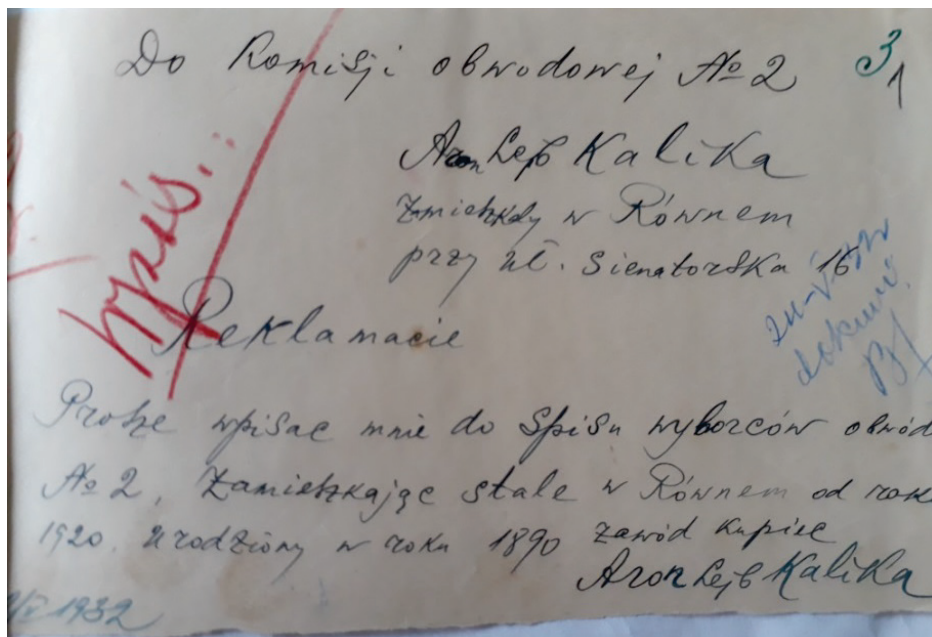 Do Komisji obwodowej № 2
3
1
Aron Lejb Kalika
zamieszkały w Równem
przy ul. Sienatorska 16
wpis..
zwr
dokum.
Reklamacie
Proszę wpisac mnie do Spisu wyborców obwód
№ 2, zamieszkając stale w Równem od rok
1920. urodziony w roku 1890 zawód kupiec
Aron Lejb Kalika
1932